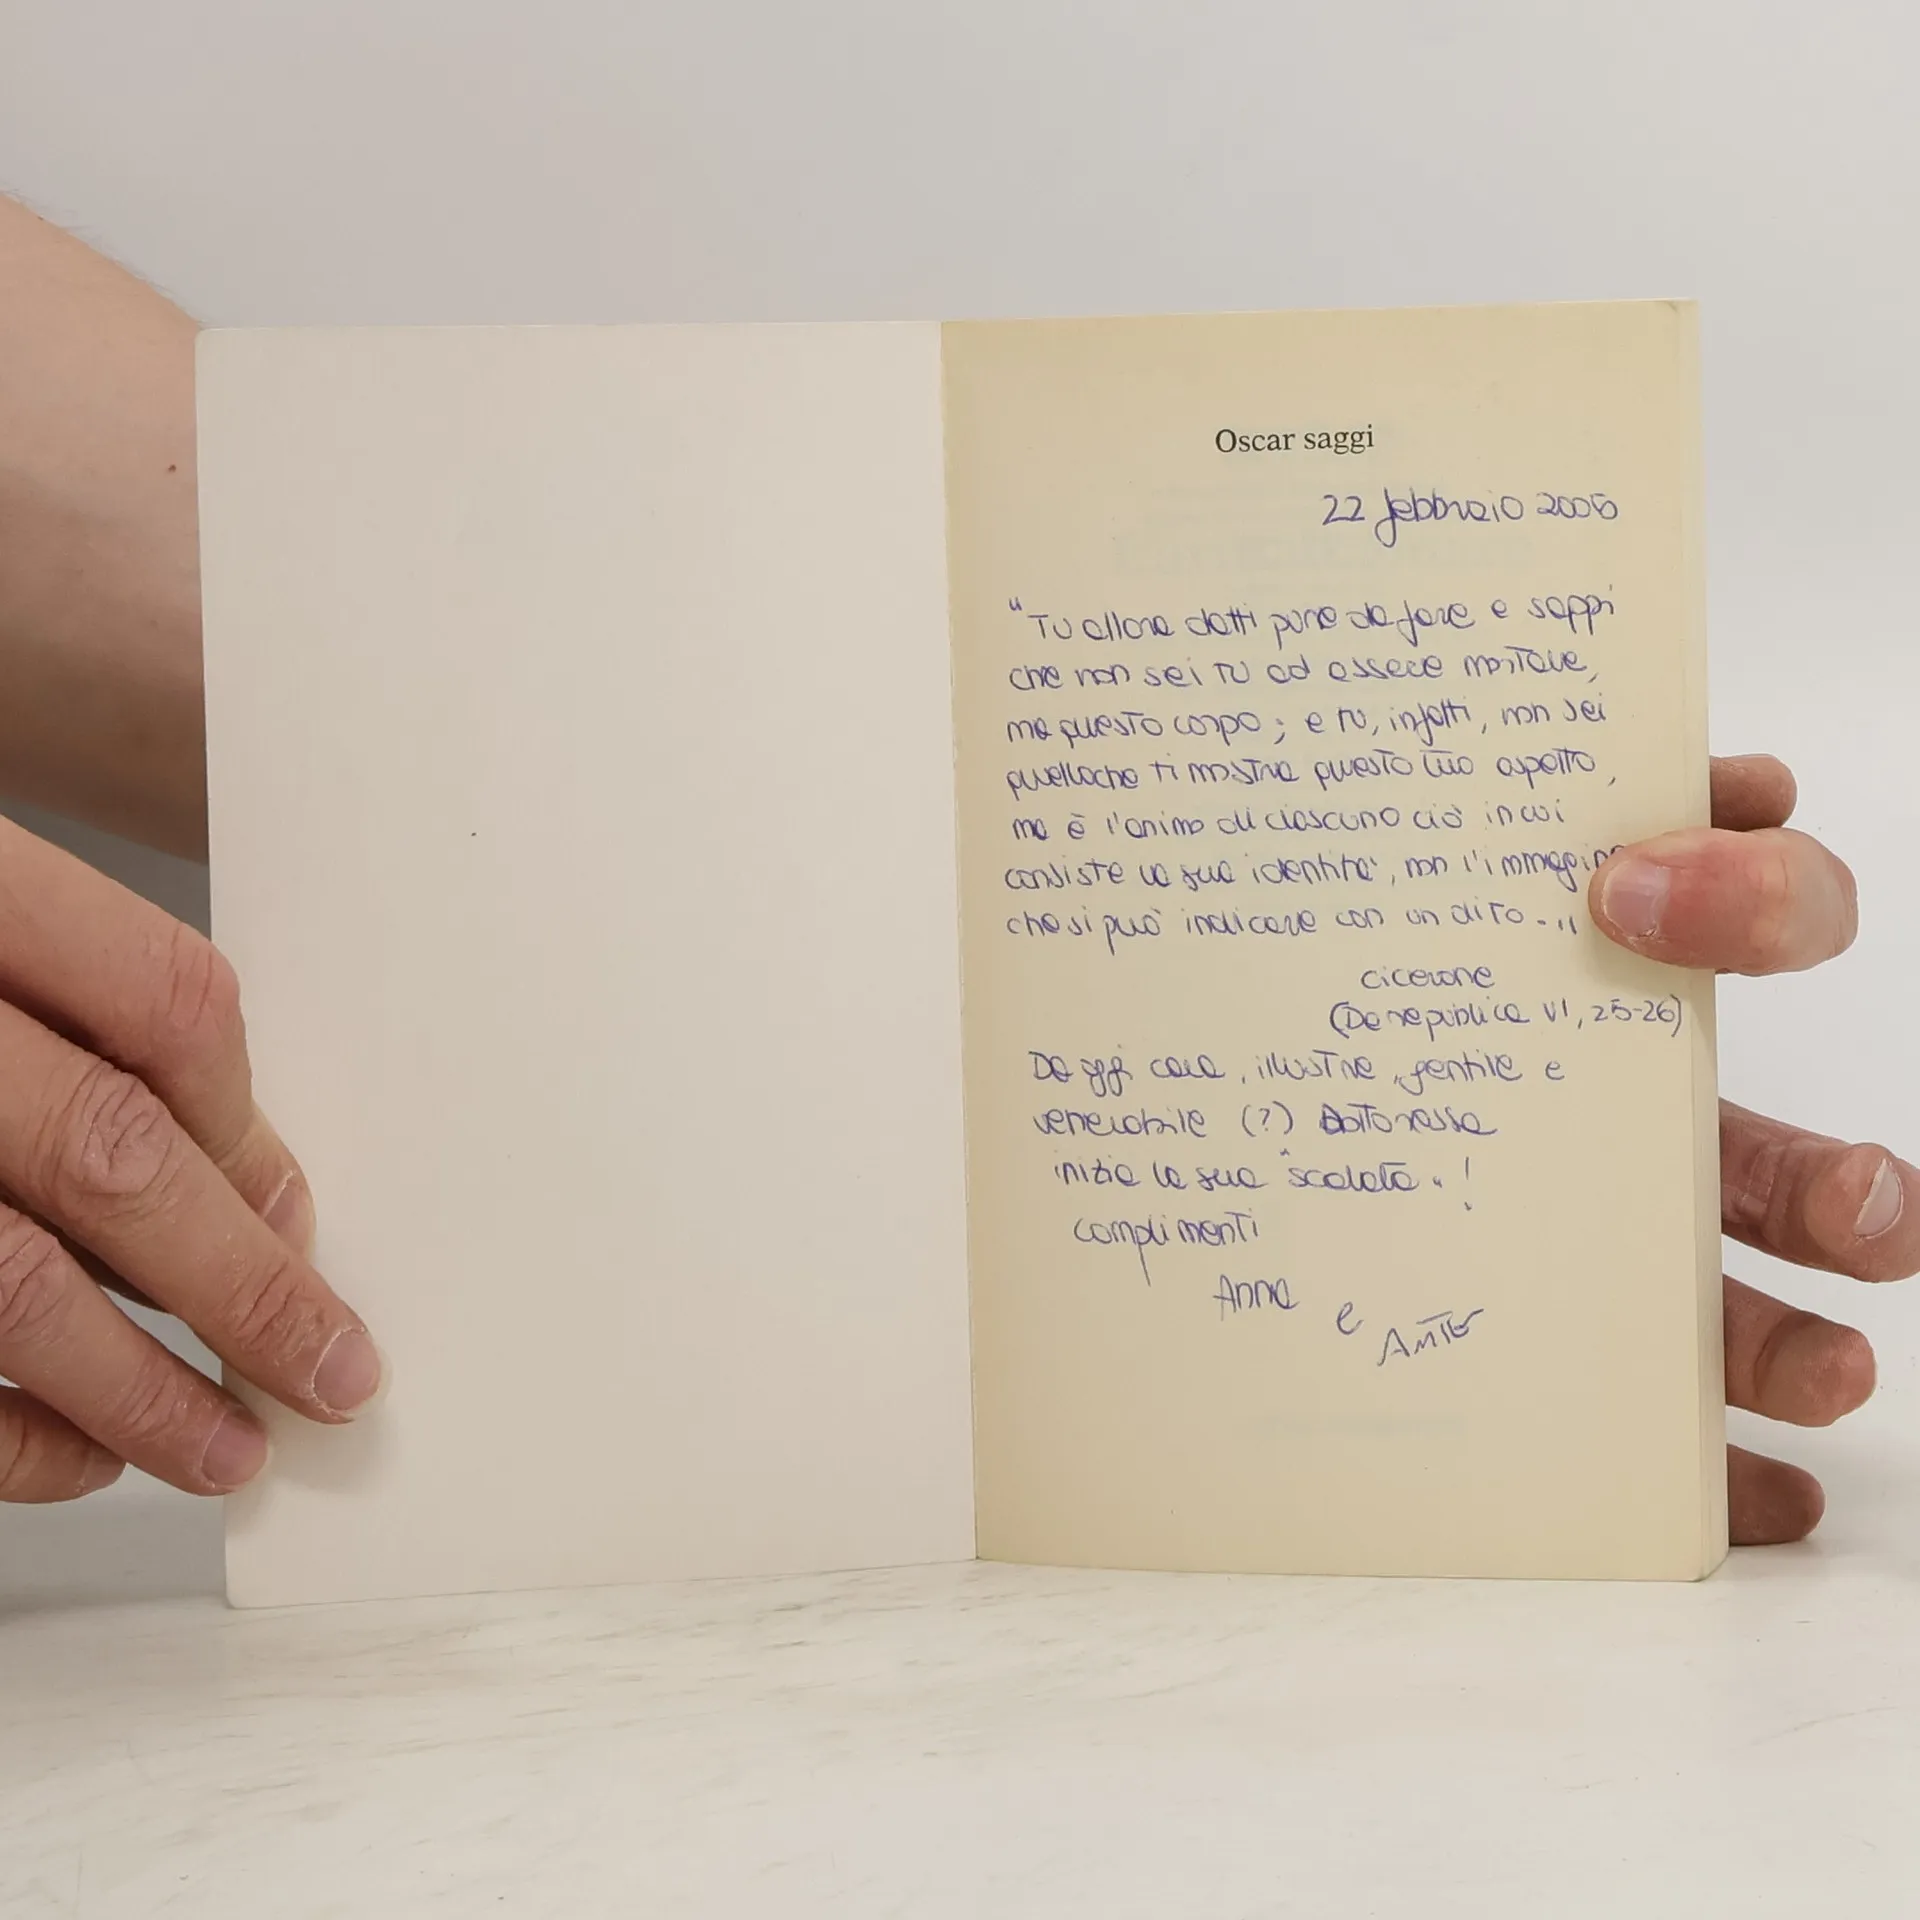 Oscar saggi
22 febbraio 2005
“Tu allora datti pure da fare e sappi
che non sei tu ad essere mortale,
ma questo corpo; e tu, infatti, non sei
quello che ti mostra questo tuo aspetto,
ma è l'animo di ciascuno ciò in cui
consiste la sua identità, non l'immagine
che si può indicare con un dito..."
Cicerone
(De republica VI, 25-26)
Da oggi cara, illustre, gentile e
venerabile (?) Dottoressa
inizia la sua "scalata"!
complimenti
Anna e